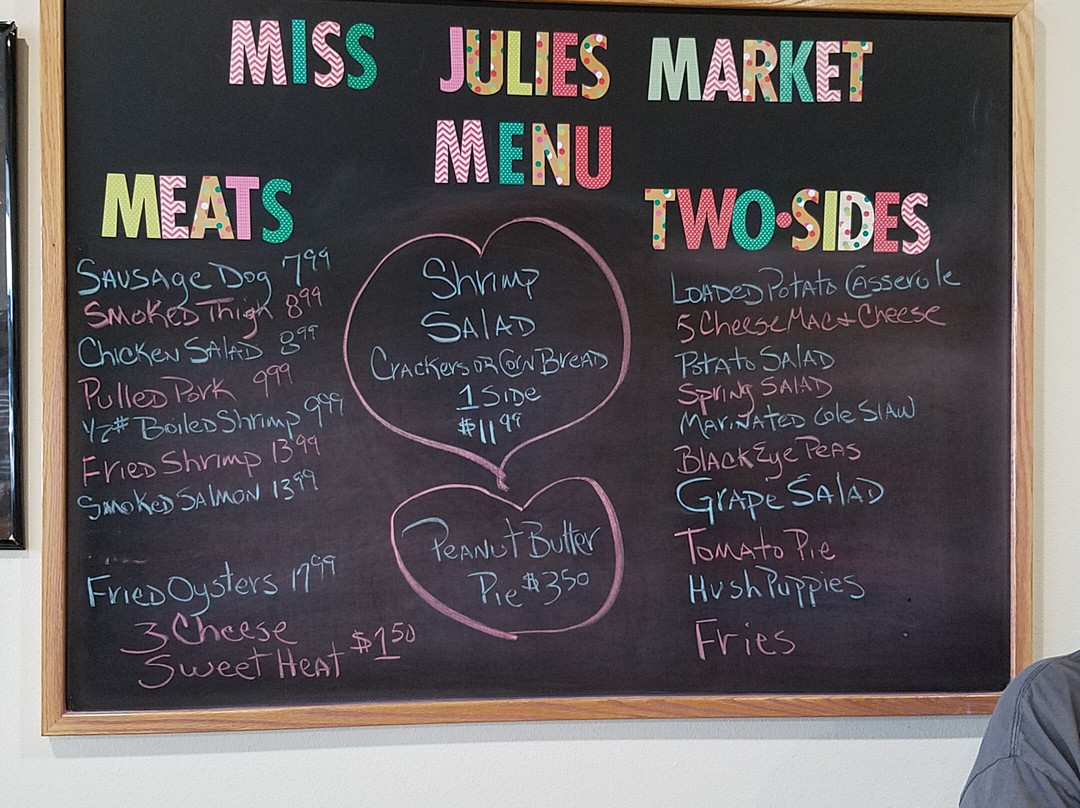 MISS JULIES MARKET
MENU
MEATS
SAUSAGE DOG 7.99
SMOKED Thigh 8.99
CHICKEN SALAD 8.99
PULLED PORK 9.99
1/2# BOILED Shrimp 9.99
FRIED Shrimp 13.99
SMOKED SALMON 13.99
FRIED Oysters 17.99
3 Cheese
SWEET HEAT $1.50
Shrimp
SALAD
CRACKERS OR CORN BREAD
1 SIDE
$11.99
PEANUT Butter
Pie $3.50
TWO•SIDES
LOADED POTATO CASSEROLE
5 CHEESE MAC + CHEESE
POTATO SALAD
SPRING SALAD
MARINATED Cole SLAW
BLACK Eye PEAS
GRAPE SALAD
TOMATO PIE
HUSH PUPPIES
Fries